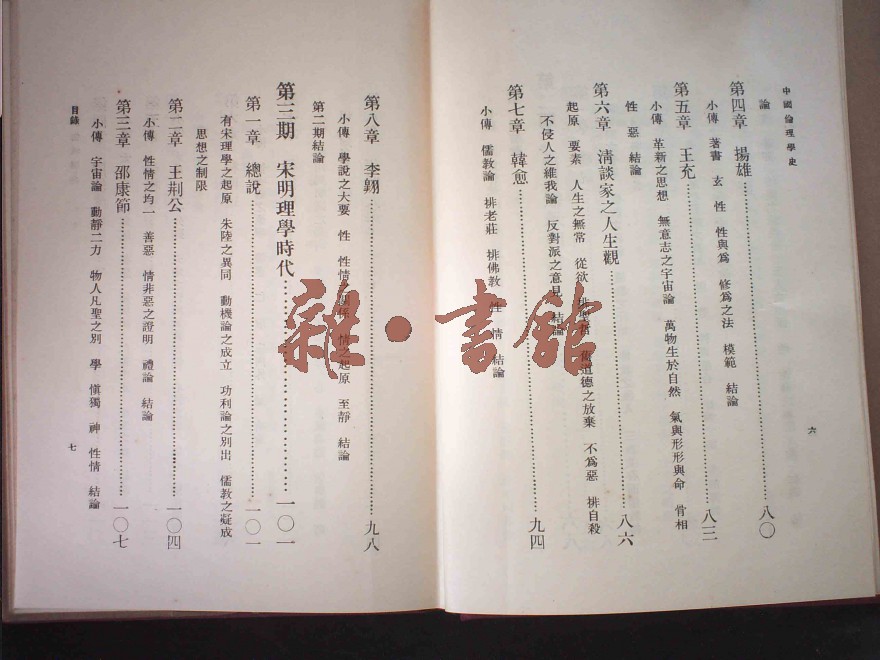 中國倫理學史
論
第四章 揚雄……八〇
小傳 著書 玄 性 性與爲 修爲之法 模範 結論
第五章 王充……八三
小傳 革新之思想 無意志之宇宙論 萬物生於自然 氣與形形與命 骨相
性惡 結論
第六章 清談家之人生觀……八六
起原 要素 人生之無常 從欲 排聖哲 舊道德之放棄 不爲惡 排自殺
不侵人之維我論 反對派之意見 結論
第七章 韓愈……九四
小傳 儒教論 排老莊 排佛教 性 情 結論
六
第八章 李翺……九八
小傳 學說之大要 性 性情之關係 情之起原 至靜 結論
第二期結論
第三期 宋明理學時代……一〇一
第一章 總說……一〇一
有宋理學之起原 朱陸之異同 動機論之成立 功利論之別出 儒教之凝成
思想之制限
第二章 王荊公……一〇四
小傳 性情之均一 善惡 情非惡之證明 禮論 結論
第三章 邵康節……一〇七
小傳 宇宙論 動靜二力 物人凡聖之別 學 愼獨 神 性情 結論
目錄
七
雜·書館